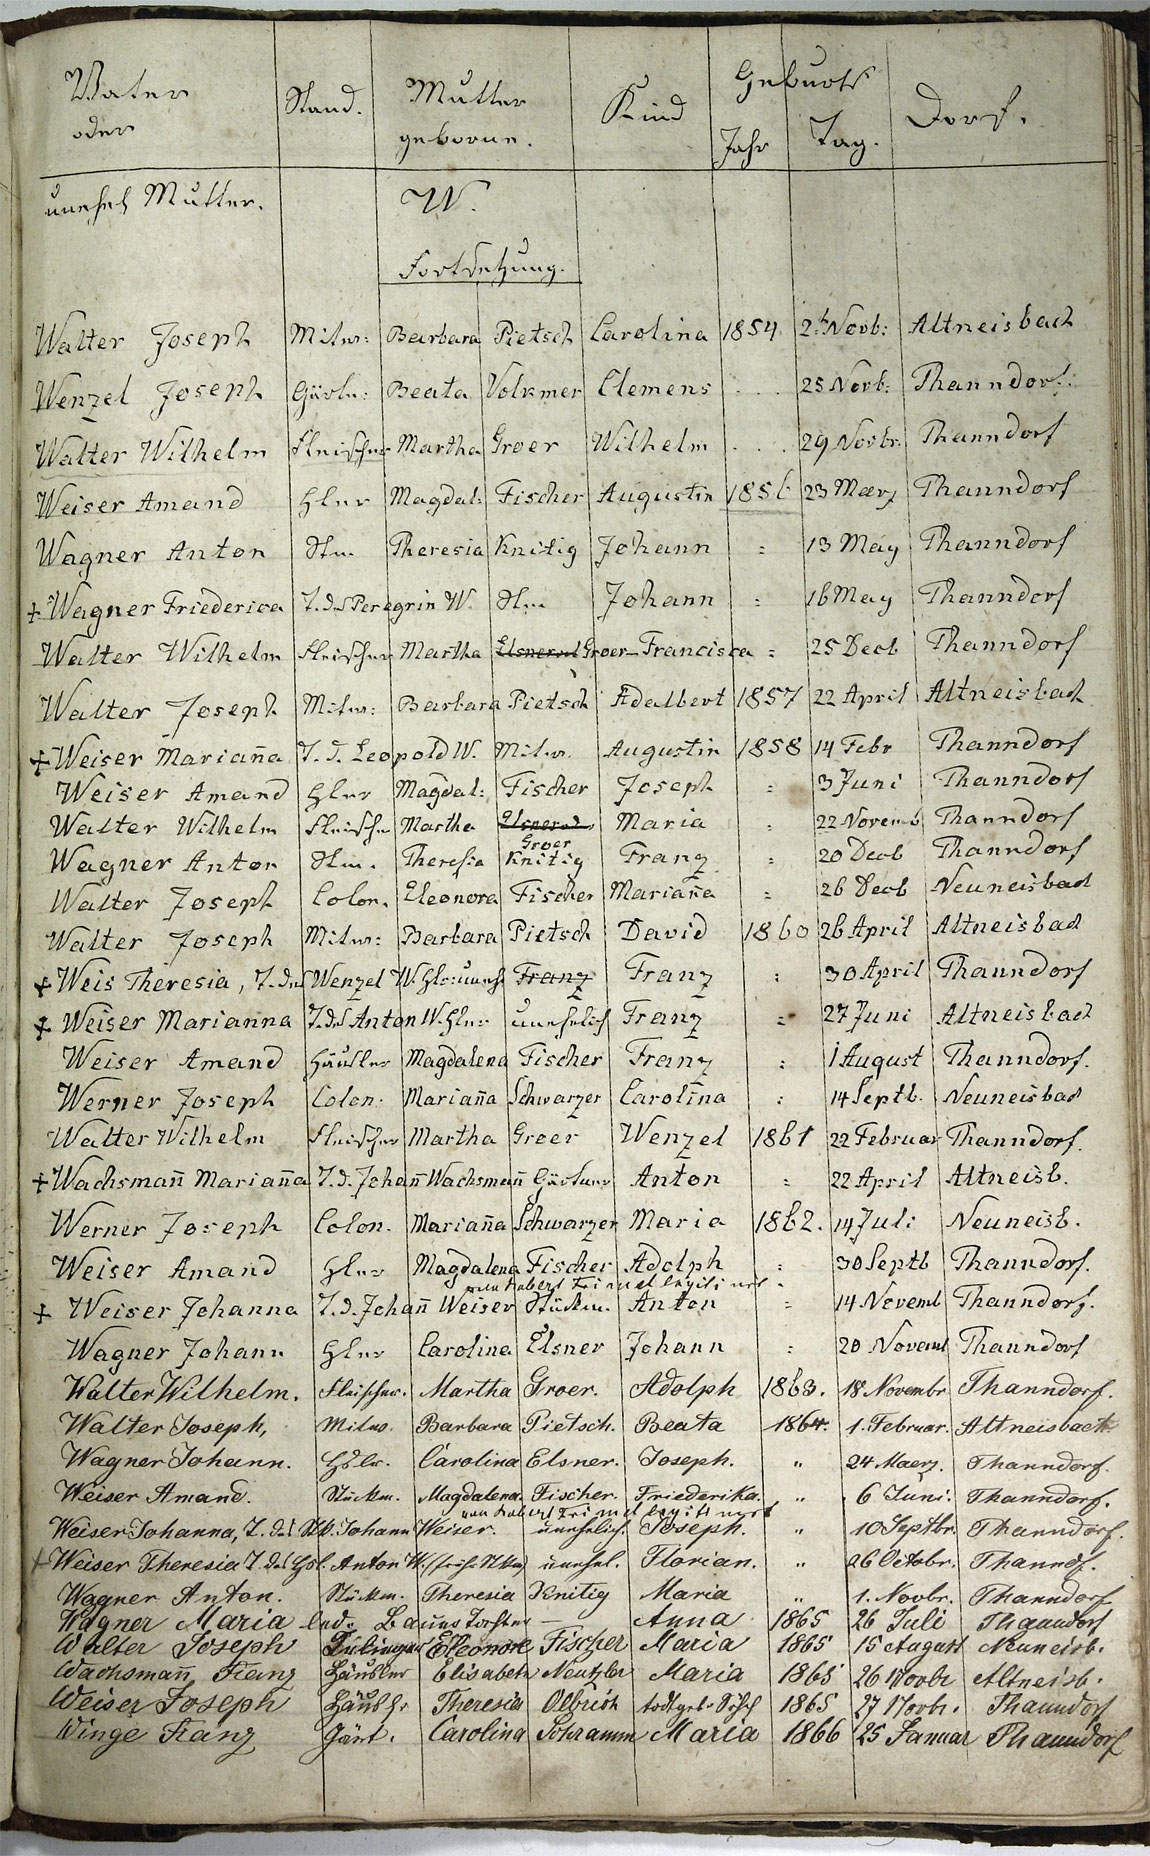 Vater Stand. Mutter Kind Geburts Dorf.
oder geborne. Jahr Tag.
unehel Mutter. W.
Fortsetzung.
Walter Joseph Milw: Barbara Pietsch Carolina 1854 2t Novb: Altneisbach
Wenzel Joseph Gärtn: Beata Volkmer Clemens . . . 25 Novb: Thanndorf.
Walter Wilhelm Fleischer Martha Groer Wilhelm . . . 29 Novbr. Thanndorf
Weiser Amand Hler Magdal: Fischer Augustin 1856 23 Maerz Thanndorf
Wagner Anton Stm. Theresia Knitig Johann = 13 May Thanndorf
+ Wagner Friederica T. des Peregrin W. Stm. Johann = 16 May Thanndorf
Walter Wilhelm Fleischer Martha Groer Francisca = 25 Decb Thanndorf
Walter Joseph Milw: Barbara Pietsch Adalbert 1857 22 April Altneisbach
+ Weiser Marian̄a T. d. Leopold W. Milw. Augustin 1858 14 Febr Thanndorf
Weiser Amand Hler Magdal: Fischer Joseph = 3 Juni Thanndorf
Walter Wilhelm Fleischer Martha Elsnerod Maria = 22 Novemb Thanndorf
Groer
Wagner Anton Stm. Theresia Knitig Franz = 20 Decb Thanndorf
Walter Joseph Colon. Eleonora Fischer Marian̄a = 26 Decb Neuneisbach
Walter Joseph Milw: Barbara Pietsch David 1860 26 April Altneisbach
+ Weis Theresia, T. des Wenzel W. Hler: uneh Franz Franz : 30 April Thanndorf
+ Weiser Marianna T. des Anton W. Hler unehelich Franz = 27 Juni Altneisbach
Weiser Amand Häusler Magdalena Fischer Franz : 1 August Thanndorf.
Werner Joseph Colon. Marian̄a Schwarzer Carolina : 14 Septb. Neuneisbach
Walter Wilhelm Fleischer Martha Groer Wenzel 1861 22 Februar Thanndorf.
+ Wachsman̄ Marian̄a T. d. Johan̄ Wachsman̄ Gärtner Anton = 22 April Altneisb.
Werner Joseph Colon. Marian̄a Schwarzer Maria 1862. 14 Juli Neuneisb.
Weiser Amand Hler Magdalena Fischer Adolph : 30 Septb Thanndorf.
von Robert Frimel legitimirt
+ Weiser Johanna T. d. Johan̄ Weiser Stückm. Anton = 14 Novemb Thanndorf.
Wagner Johann Hler Carolina Elsner Johann : 20 Novemb Thanndorf
Walter Wilhelm. Fleischer. Martha Groer. Adolph 1863. 18 Novembr Thanndorf.
Walter Joseph, Milw. Barbara Pietsch. Beata 1864. 1. Februar. Altneisbach
Wagner Johann. Hslr. Carolina Elsner. Joseph. " 24 Maerz. Thanndorf.
Weiser Amand. Stückm. Magdalena Fischer. Friederika. " 6 Juni. Thanndorf.
von Robert Frimel legitimirt
Weiser Johanna, T. des Stk. Johann Weiser. unehelich. Joseph. " 10 Septbr. Thanndorf.
+ Weiser Theresia T. des Hsl. Anton W. (früh. Stkm) unehel. Florian. " 26 Octobr. Thanndf.
Wagner Anton. Stückm. Theresia Knitig Maria " 1. Novbr. Thanndorf
Wagner Maria led. Bauers Tochter — Anna 1865 26 Juli Thanndorf
Walter Joseph Eleonore Fischer Maria 1865 15 August Neuneisb.
Wachsman̄ Franz Häusler Elisabeth Neutzler Maria 1865 26 Novbr Altneisb.
Weiser Joseph Häuslr Theresia Olbrich todtgeb. 1865 27 Novbr. Thanndorf
Winge Franz Gärt. Carolina Schramm Maria 1866 25 Januar Thanndorf